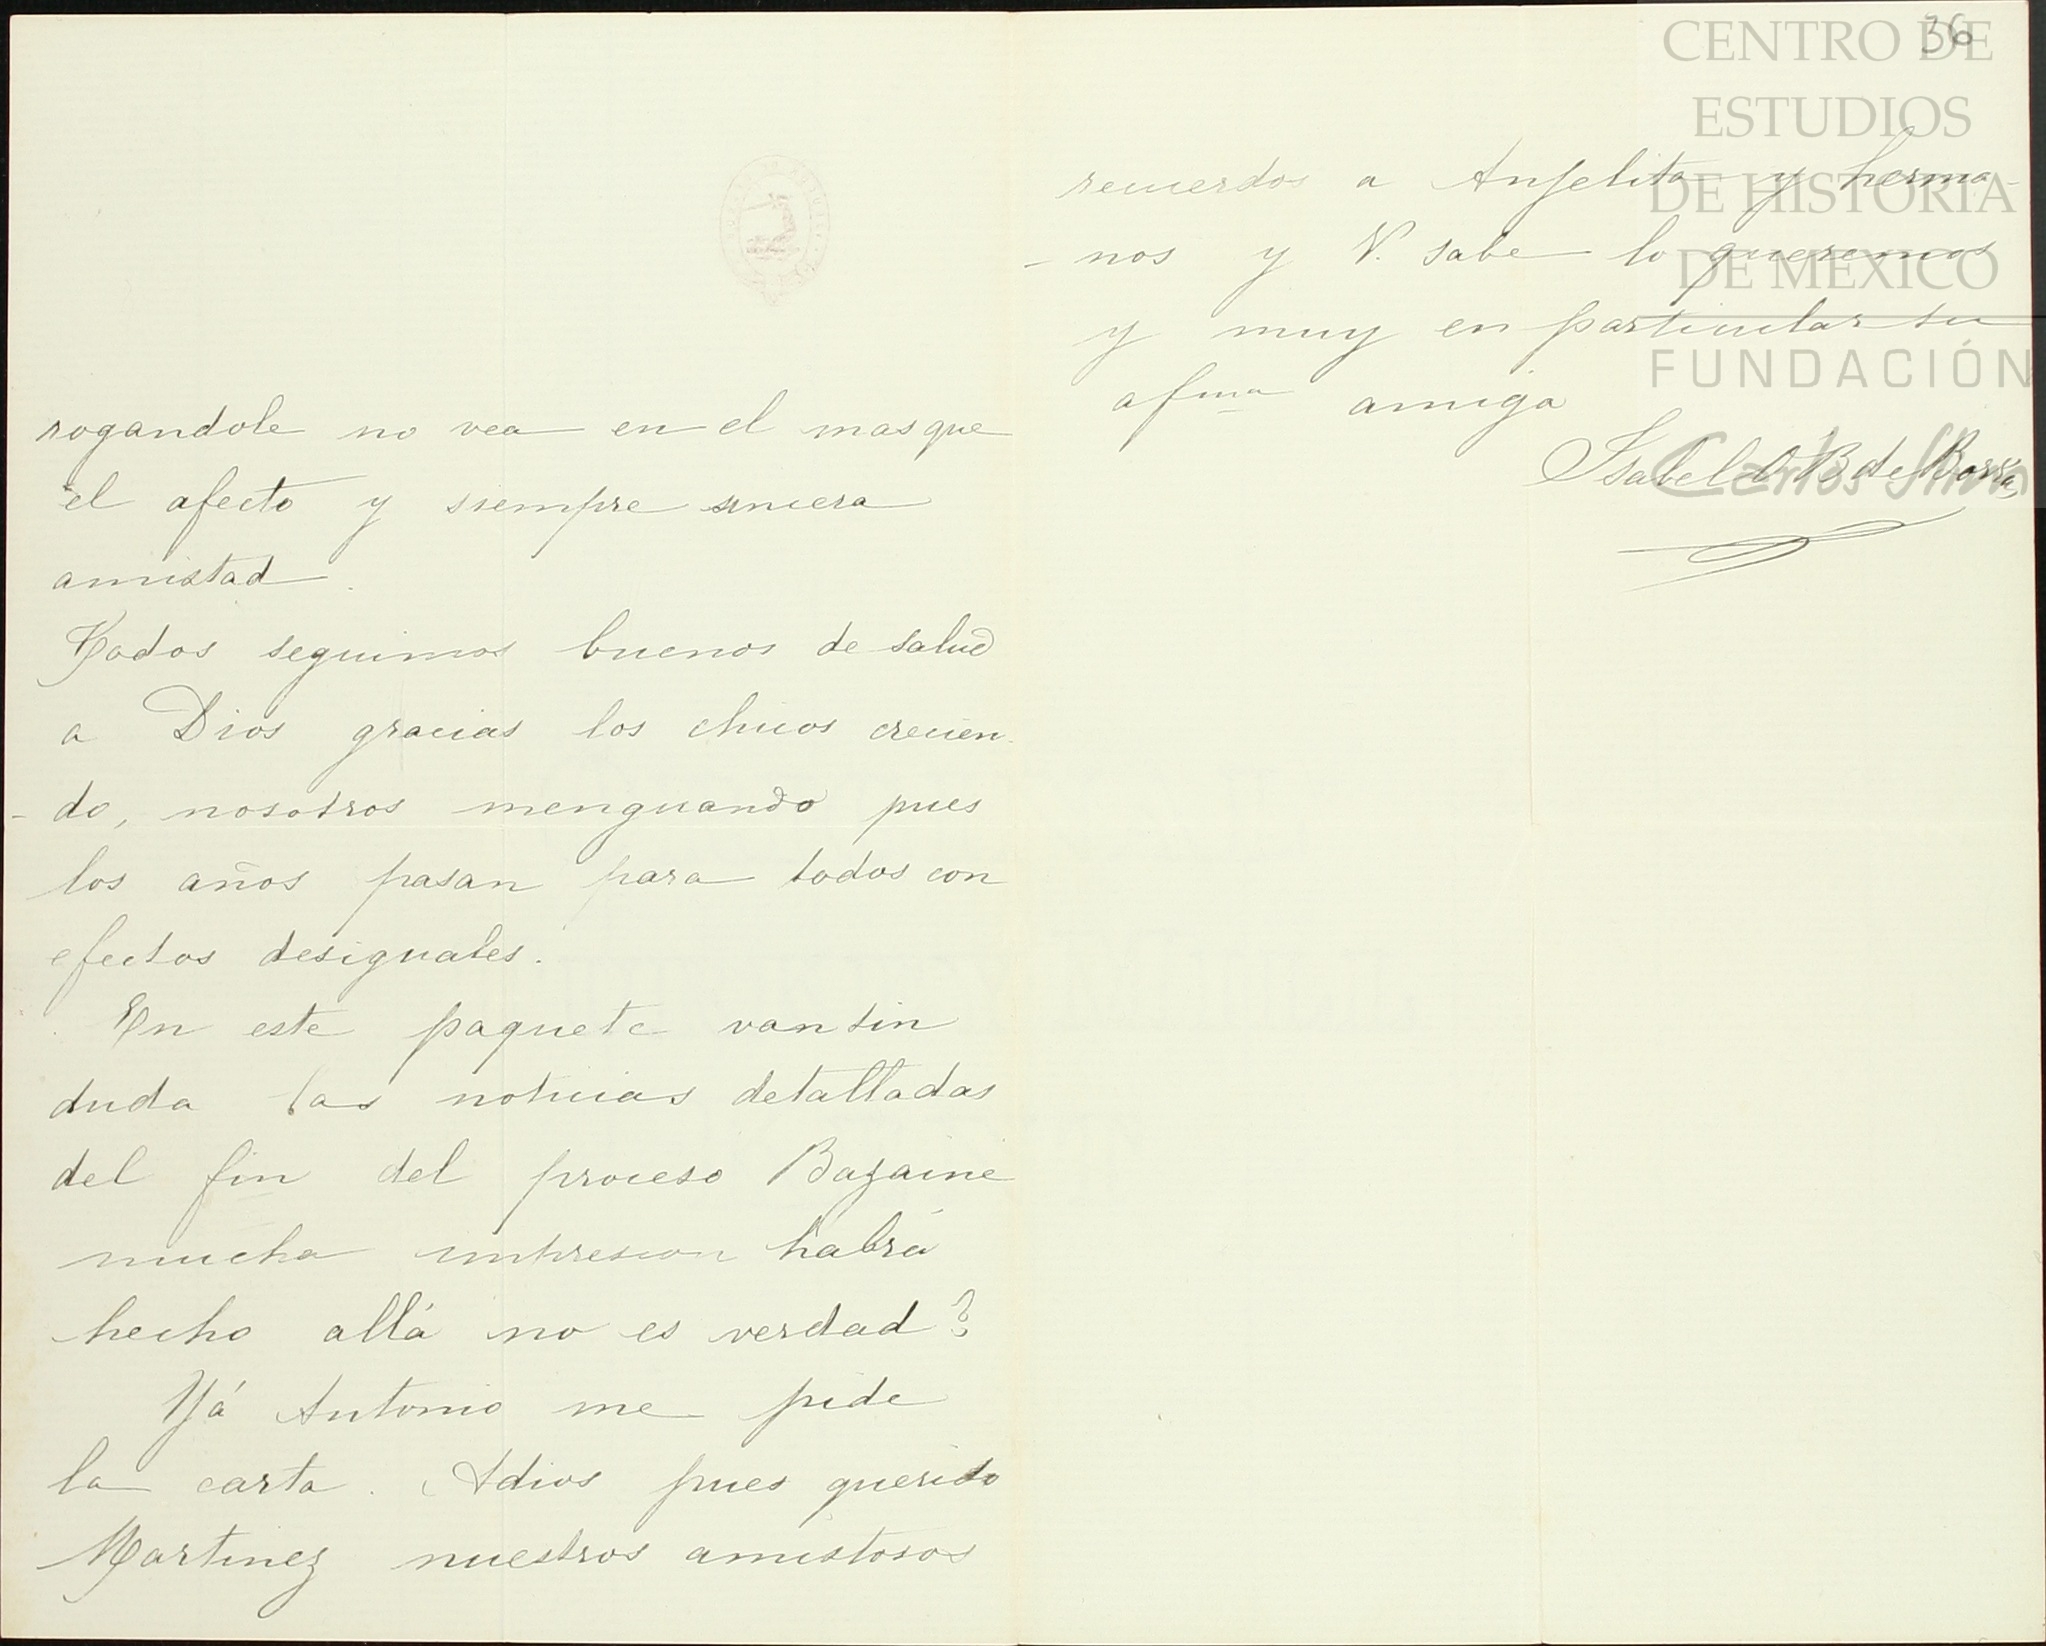 rogandole no vea en el mas que
el afecto y siempre sincera
amistad.
Todos seguimos buenos de salud
a Dios gracias los chicos crecien-
- do, nosotros menguando pues
los años pasan para todos con
efectos desiguales.
En este paquete van sin
duda las noticias detalladas
del fin del proceso Bazaine
mucha impresion habrá
hecho allá no es verdad?
Yá Antonio me pide
la carta. Adios pues querido
Martinez nuestros amistosos
36
recuerdos a Anjelita y herma-
- nos y V. sabe lo queremos
y muy en particular su
afma amiga
Isabel B de Borra
CENTRO DE
ESTUDIOS
DE HISTORIA
DE MEXICO
FUNDACIÓN
Carlos Slim